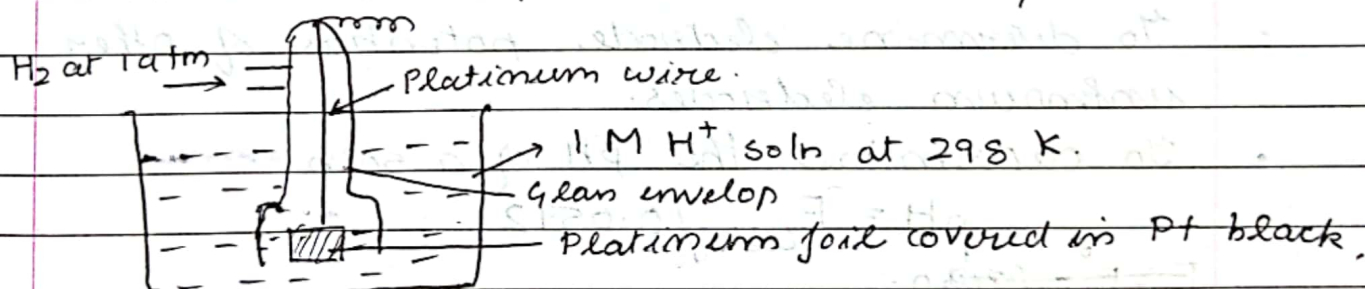 H₂ at 1 atm
Platinum wire.
1 M H⁺ soln at 298 K.
Glass envelop
Platinum foil covered in Pt black.